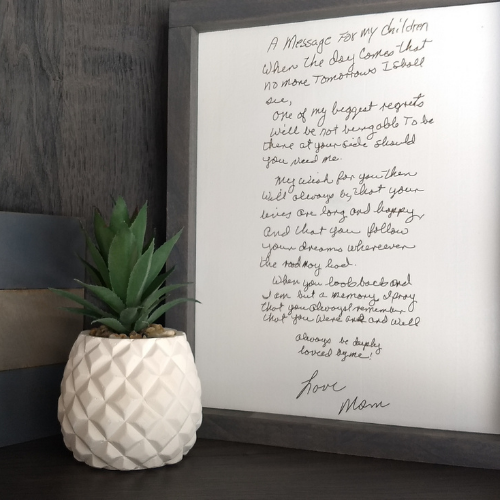 A Message For my children
When the day comes that
no more Tomorrows I shall
see,
One of my biggest regrets
will be not being able To be
there at your side should
you need me.
My wish for you then
will always be, that your
lives are long and happy,
and that you follow
your dreams wherever
the road may lead.
When you look back and
I am but a memory, I pray
that you always remember
that you were and and will
always be deeply
loved by me!
Love
Mom